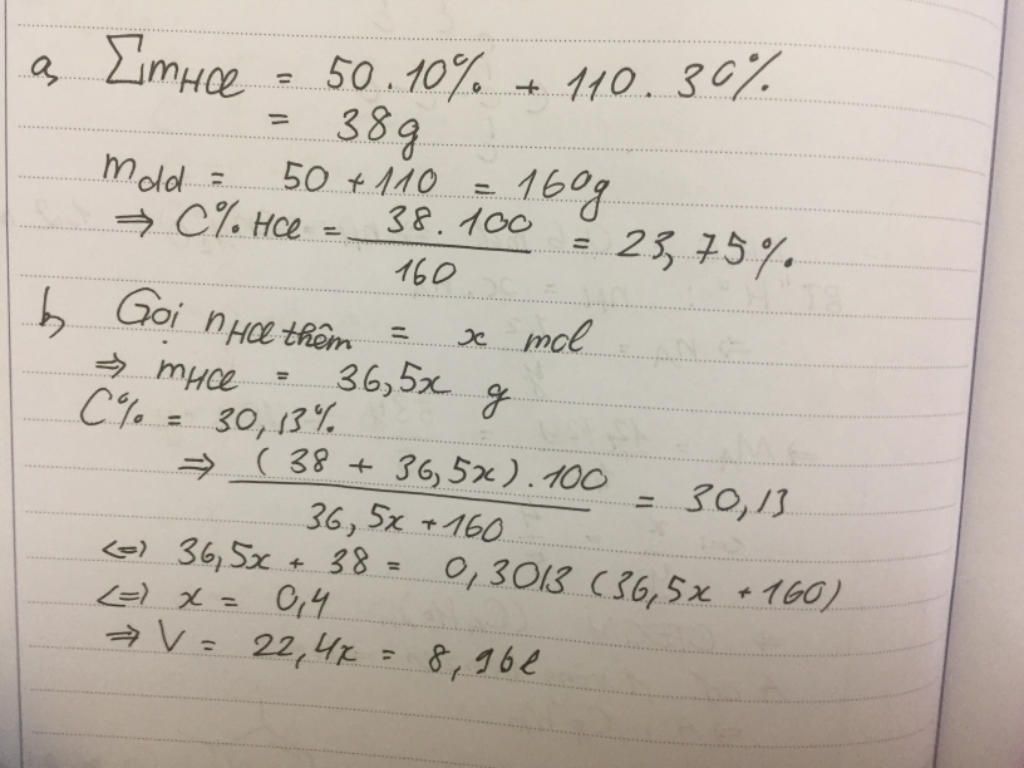 a, ∑mHCl = 50.10% + 110.30%
= 38g
mdd = 50 + 110 = 160g
⇒ C% HCl = 38.100 / 160 = 23,75%.
b, Gọi nHCl thêm = x mol
⇒ mHCl = 36,5x g
C% = 30,13%
⇒ (38 + 36,5x).100 / 36,5x + 160 = 30,13
<=> 36,5x + 38 = 0,3013 (36,5x + 160)
<=> x = 0,4
⇒ V = 22,4x = 8,96l